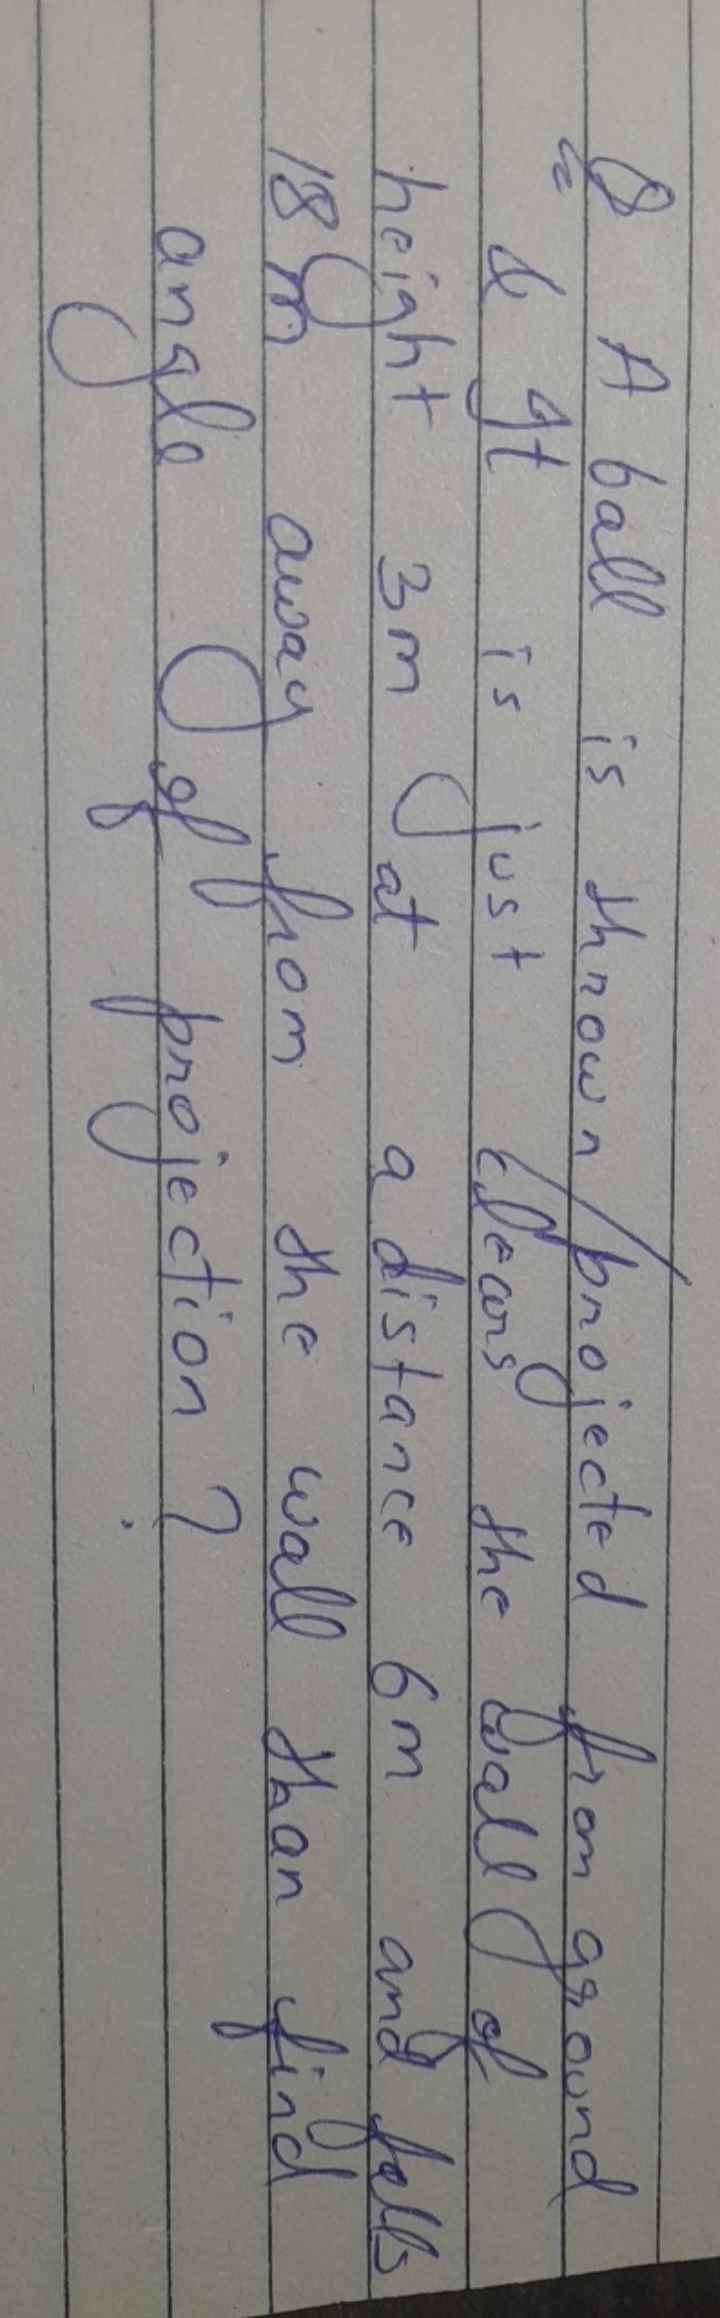 Q A ball is thrown/projected from ground
& It is just clears the wall of
height 3m at a distance 6m and falls
18m away from the wall than find
angle of projection?